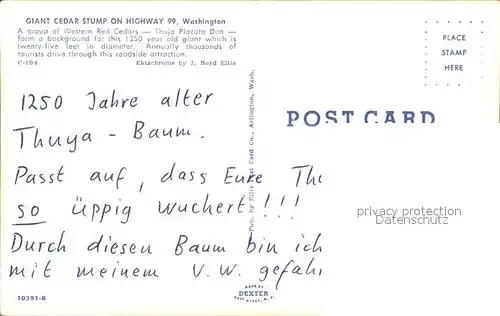 GIANT CEDAR STUMP ON HIGHWAY 99, Washington
A group of Western Red Cedars — Thuja Placata Don —
form a background for this 1250 year old giant which is
twenty-five feet in diameter. Annually thousands of
tourists drive through this roadside attraction.
C-194 Ektachrome by J. Boyd Ellis
PLACE
STAMP
HERE
1250 Jahre alter
Thuya - Baum.
Passt auf, dass Eure
so üppig wuchert!!!
Durch diesen Baum bin ich
mit meinem V.W.
10391-B
Pub. by Ellis Post Card Co., Arlington, Wash.
POST CARD
privacy protection
Datenschutz
MADE BY
DEXTER
WEST NYACK, N.Y.